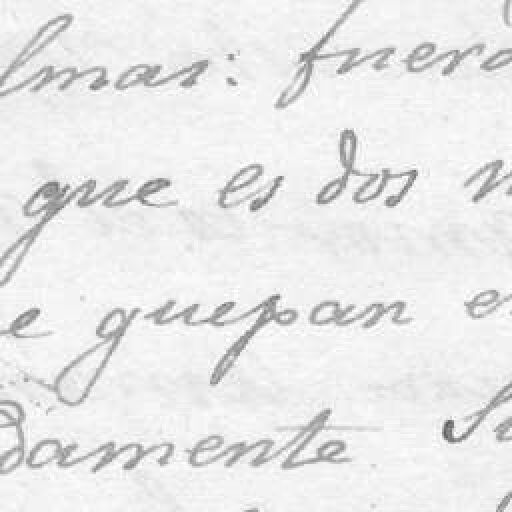 lmas: fuera
que es dos
e quepan en
damente Si